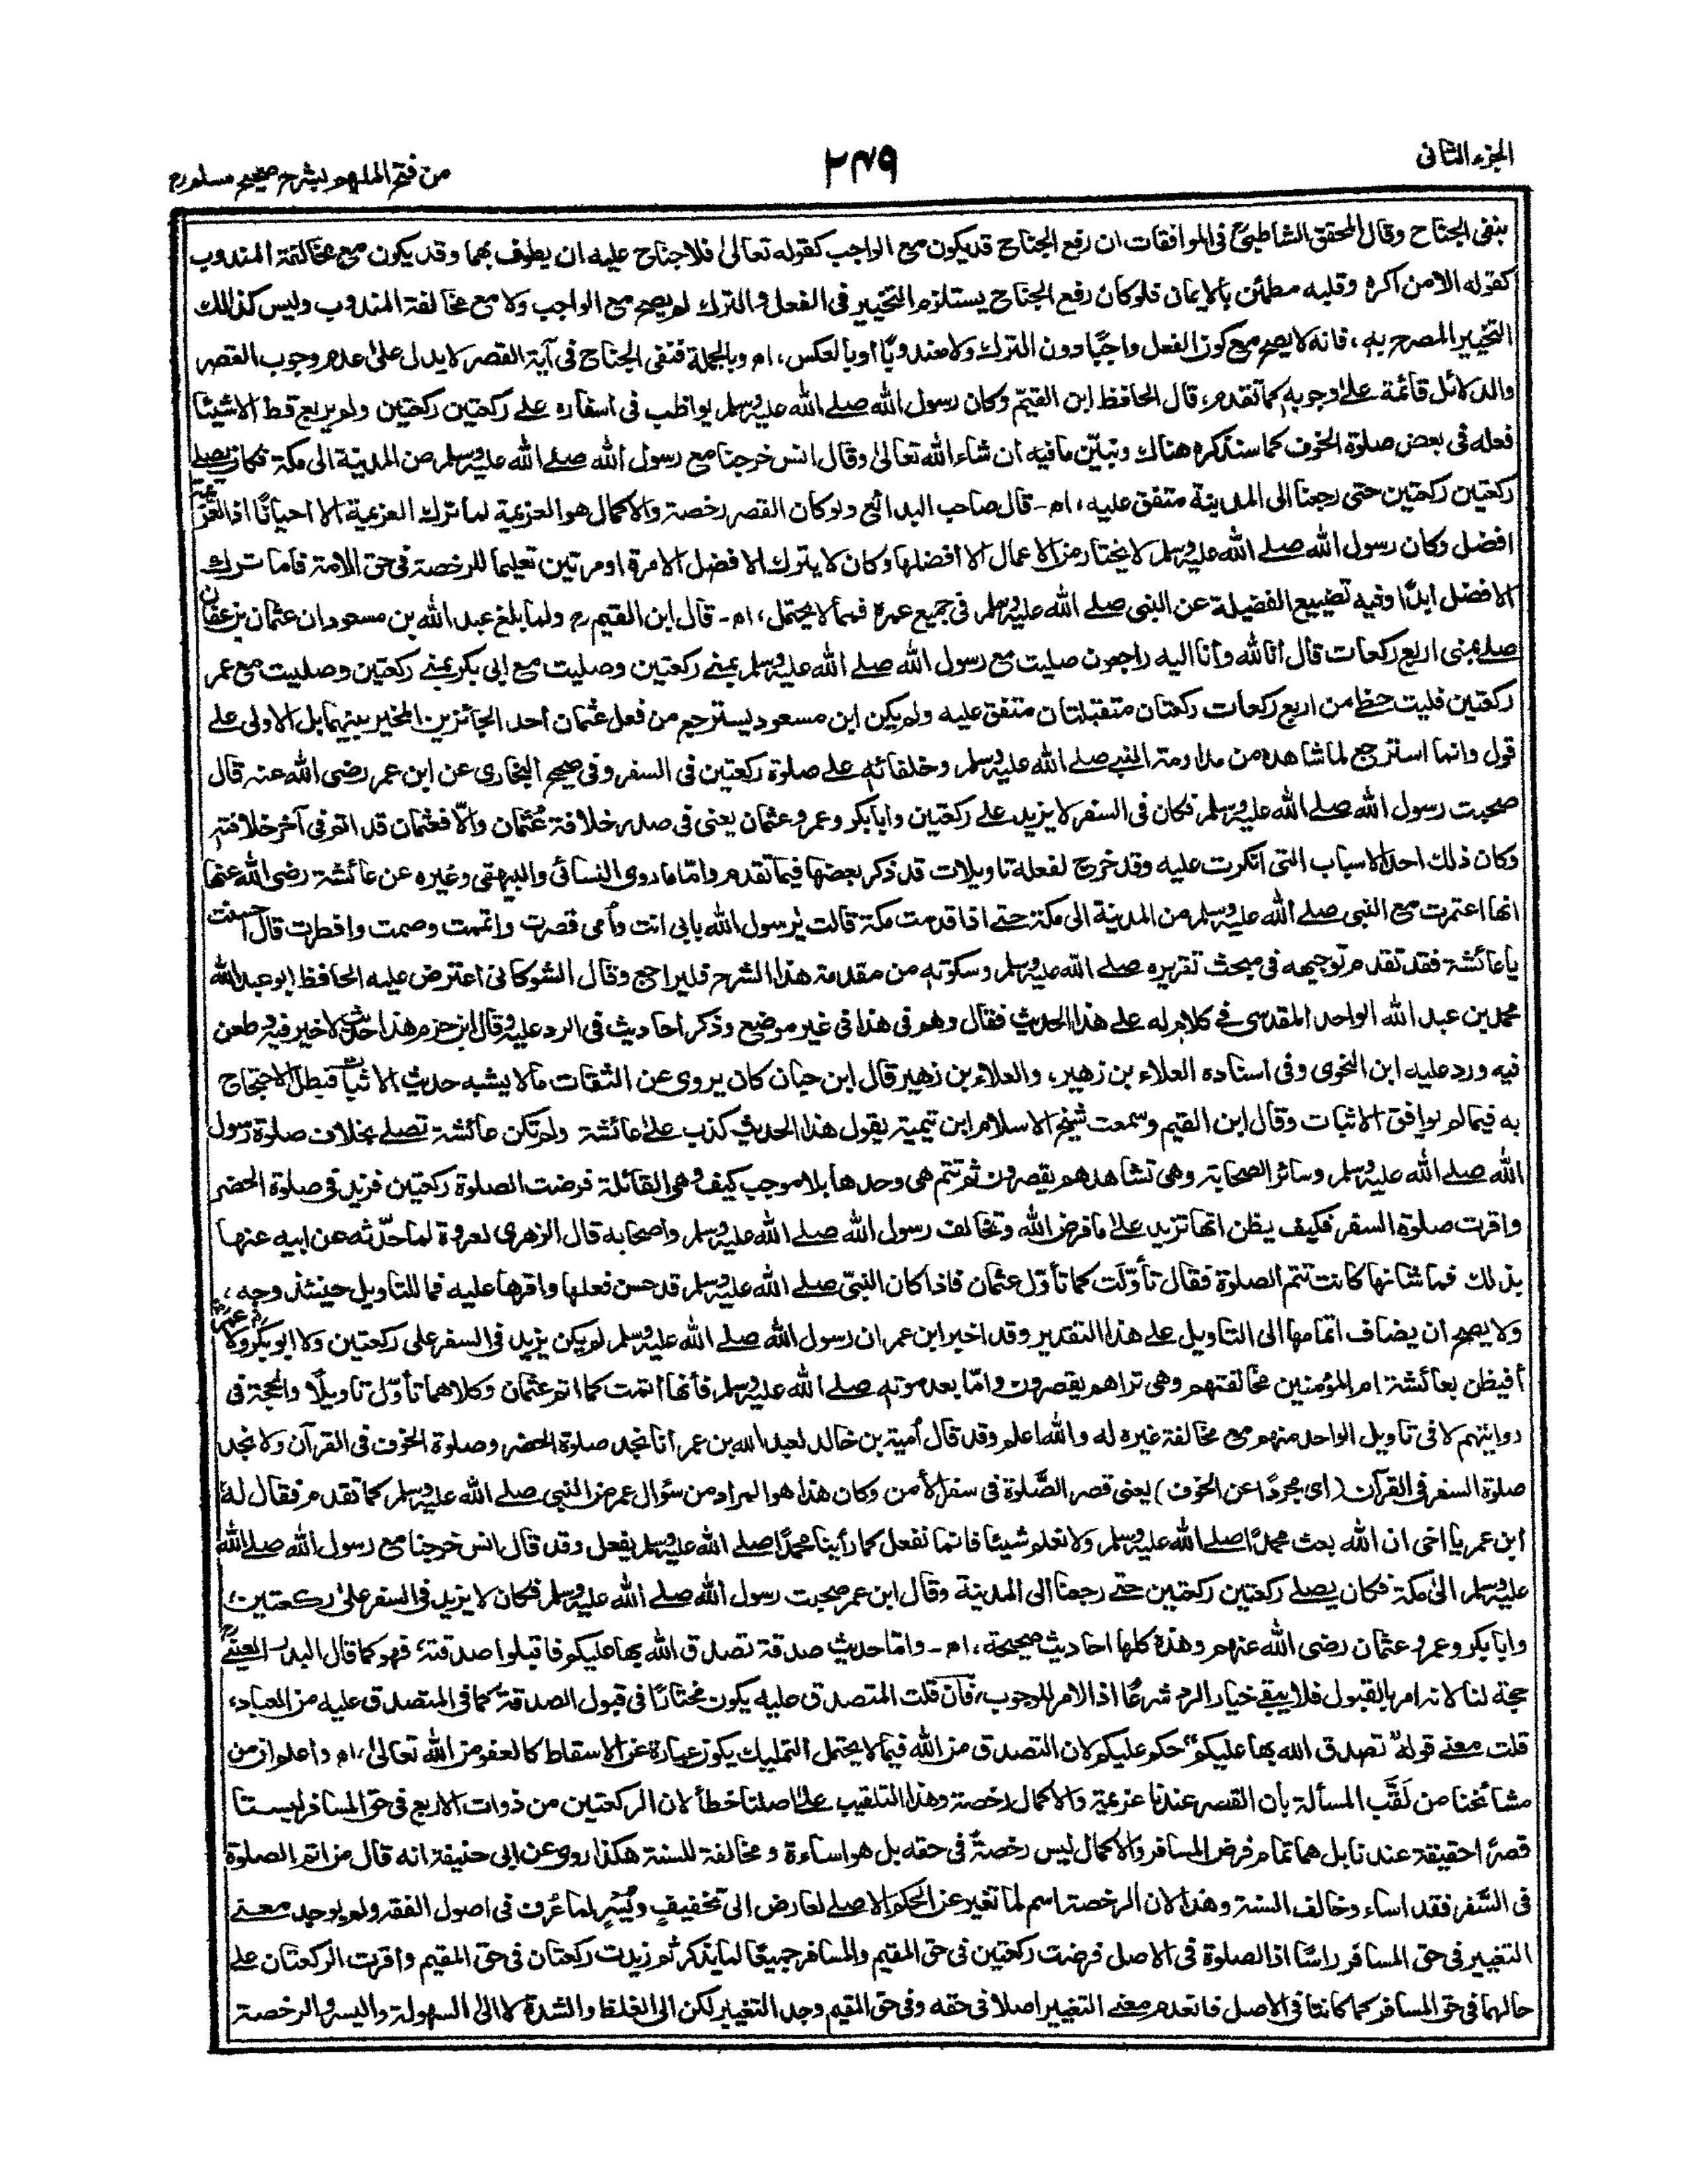 الجزء الثانى
٢٤٩
من فتح الملهم بشرح صحيح مسلم رح
بنفى الجناح وقال المحقق الشاطبىؒ فى الموافقات ان رفع الجناح قد يكون مع الواجب كقوله تعالىٰ فلا جناح عليه ان يطوف بهما وقد يكون مع مخالفة المندوب
كقوله الا من اكره وقلبه مطمئن بالايمان فلو كان رفع الجناح يستلزم التخيير فى الفعل والترك لم يصح مع الواجب ولا مع مخالفة المندوب وليس كذالك
التخيير المصرح به، فانه لا يصح مع كون الفعل واجبًا دون الترك ولا مندوبًا أو بالعكس، اه وبالجملة فنفى الجناح فى آية القصر لا يدل علىٰ عدم وجوب القصر
والدلائل قائمة علىٰ وجوبه كما تقدم، قال الحافظ ابن القيّم وكان رسول الله صلے الله عليه وسلم يواظب فى اسفاره علے ركعتين ركعتين ولم يربع قط الا شيئًا
فعله فى بعض صلوة الخوف كما سنذكره هناك ونبيّن ما فيه ان شاء الله تعالىٰ وقال انس خرجنا مع رسول الله صلے الله عليه وسلم من المدينة الى مكة فكان يصلے
ركعتين ركعتين حتى رجعنا الى المدينة متفق عليه، اه- قال صاحب البدائع ولو كان القصر رخصة والاكمال هو العزيمة لما ترك العزيمة الا احيانًا اذ العزيمة
افضل وكان رسول الله صلے الله عليه وسلم لا يختار من الاعمال الا افضلها وكان لا يترك الافضل الا مرة او مرتين تعليما للرخصة فى حق الامة فاما ترك
الافضل ابدًا وفيه تضييع الفضيلة عن النبى صلے الله عليه وسلم فى جميع عمره فمما لا يحتمل، اه- قال ابن القيم رح ولما بلغ عبد الله بن مسعود ان عثمان بن عفان
صلے بمنى اربع ركعات قال انا لله وانا اليه راجعون صليت مع رسول الله صلے الله عليه وسلم بمنے ركعتين وصليت مع ابى بكر بمنے ركعتين وصليت مع عمر
ركعتين فليت حظے من اربع ركعات ركعتان متقبلتان متفق عليه ولم يكن ابن مسعود يسترجع من فعل عثمان احد الجائزين المخير بينهما بل الاولى على
قول وانما استرجع لما شاهده من مداومة النبے صلے الله عليه وسلم وخلفائه علے صلوة ركعتين فى السفر وفى صحيح البخارى عن ابن عمر رضى الله عنه قال
صحبت رسول الله صلے الله عليه وسلم فكان فى السفر لا يزيد على ركعتين وابا بكر وعمر وعثمان يعنى فى صدر خلافة عُثمان والّا فعثمان قد اتم فى آخر خلافته
وكان ذلك احد الاسباب التى انكرت عليه وقد خرج لفعله تاويلات قد ذكر بعضها فيما تقدم وامّا ما روى النسائى والبيهقى وغيره عن عائشة رضى الله عنها
انها اعتمرت مع النبى صلے الله عليه وسلم من المدينة الى مكة حتے اذا قدمت مكة قالت يٰرسول الله بابى انت وأمى قصرت واتممت وصمت وافطرت قال احسنت
يا عائشة فقد تقدم توجيهه فى مبحث تقريره صلے الله عليه وسلم وسكوته من مقدمة هذا الشرح فليراجع وقال الشوكانى اعترض عليه الحافظ ابو عبد الله
محمد بن عبد الله الواحد المقدسى فے كلام له على هذا الحديث فقال وهم فى هذا فى غير موضع وذكر احاديث فى الرد عليه وقال ابن حزم هذا حديث لا خير فيه وطعن
فيه ورد عليه ابن النحوى وفى اسناده العلاء بن زهير، والعلاء بن زهير قال ابن حبان كان يروى عن الثقات مالا يشبه حديث الاثبات فبطل الاحتجاج
به فيما لم يوافق الاثبات وقال ابن القيم وسمعت شيخ الاسلام ابن تيمية يقول هذا الحديث كذب علىٰ عائشة ولم تكن عائشة تصلے بخلاف صلوة رسول
الله صلے الله عليه وسلم وسائر الصحابة وهى تشاهدهم يقصرون ثم تتم هى وحدها بلا موجب كيف وهى القائلة فرضت الصلوة ركعتين فزيد فى صلوة الحضر
واقرت صلوة السفر فكيف يظن انها تزيد علىٰ ما فرض الله وتخالف رسول الله صلے الله عليه وسلم واصحابه قال الزهرى لعروة لما حدّثه عن ابيه عنها
بذلك فما شانها كانت تتم الصلوة فقال تأوّلت كما تأوّل عثمان فاذا كان النبىّ صلے الله عليه وسلم قد حسن فعلها واقرها عليه فما للتاويل حينئذ وجه،
ولا يصح ان يضاف اتمامها الى التاويل علے هذا التقدير وقد اخبر ابن عمر ان رسول الله صلے الله عليه وسلم لم يكن يزيد فى السفر على ركعتين ولا ابو بكر ولا عمر
أفيظن بعائشة ام المؤمنين مخالفتهم وهى تراهم يقصرون وامّا بعد موته صلے الله عليه وسلم فانها اتمت كما اتم عثمان وكلاهما تأوّل تاويلًا والحجة فى
روايتهم لا فى تاويل الواحد منهم مع مخالفة غيره له والله اعلم وقد قال أمية بن خالد لعبد الله بن عمر انا نجد صلوة الحضر وصلوة الخوف فى القرآن ولا نجد
صلوة السفر فى القرآن (اى مجردًا عن الخوف) يعنى قصر الصَّلوة فى سفر الأمن وكان هذا هو المراد من سؤال عمر من النبى صلے الله عليه وسلم كما تقدم فقال له
ابن عمر يا اخى ان الله بعث محمدًا صلے الله عليه وسلم ولا نعلم شيئًا فانما نفعل كما رأينا محمدًا صلے الله عليه وسلم يفعل وقد قال انس خرجنا مع رسول الله صلے الله
عليه وسلم الى مكة فكان يصلے ركعتين ركعتين حتے رجعنا الى المدينة وقال ابن عمر صحبت رسول الله صلے الله عليه وسلم فكان لا يزيد فى السفر علىٰ ركعتين
وابا بكر وعمر وعثمان رضى الله عنهم وهذه كلها احاديث صحيحة، اه- وامّا حديث صدقة تصدق الله بها عليكم فاقبلوا صدقته، فهو كما قال البدر العينے رح
حجة لنا لانه امر بالقبول فلا يبقے خيار الرد شرعًا اذ الامر للوجوب، فان قلت المتصدق عليه يكون مختارًا فى قبول الصدقة كما فى المتصدق عليه من العباد،
قلت معنے قوله "تصدق الله بها عليكم" حكم عليكم لان التصدق من الله فيما لا يحتمل التمليك يكون عبارة عن الاسقاط كالعفو من الله تعالىٰ، اه واعلم ان من
مشائخنا من لَقَّب المسألة بان القصر عندنا عزيمة والاكمال رخصة وهذا التلقيب علىٰ اصلنا خطأ لان الركعتين من ذوات الاربع فى حق المسافر ليستا
قصرًا حقيقة عندنا بل هما تمام فرض المسافر والاكمال ليس رخصةً فى حقه بل هو اساءة ومخالفة للسنة هكذا روى عن ابى حنيفة انه قال من اتم الصلوة
فى السَّفر فقد اساء وخالف السنة وهذا لان الرخصة اسم لما تغير عن الحكم الاصلے لعارض الى تخفيفٍ ويُسْرٍ لما عُرف فى اصول الفقه ولم يوجد معنے
التغيير فى حق المسافر راسًا اذ الصلوة فى الاصل فرضت ركعتين فى حق المقيم والمسافر جميعًا لما يذكر ثم زيدت ركعتان فى حق المقيم واقرت الركعتان علے
حالهما فى حق المسافر كما كانتا فى الاصل فانعدم معنے التغيير اصلا فى حقه وفى حق المقيم وجد التغيير لكن الى الغلظ والشدة لا الى السهولة واليسر والرخصة